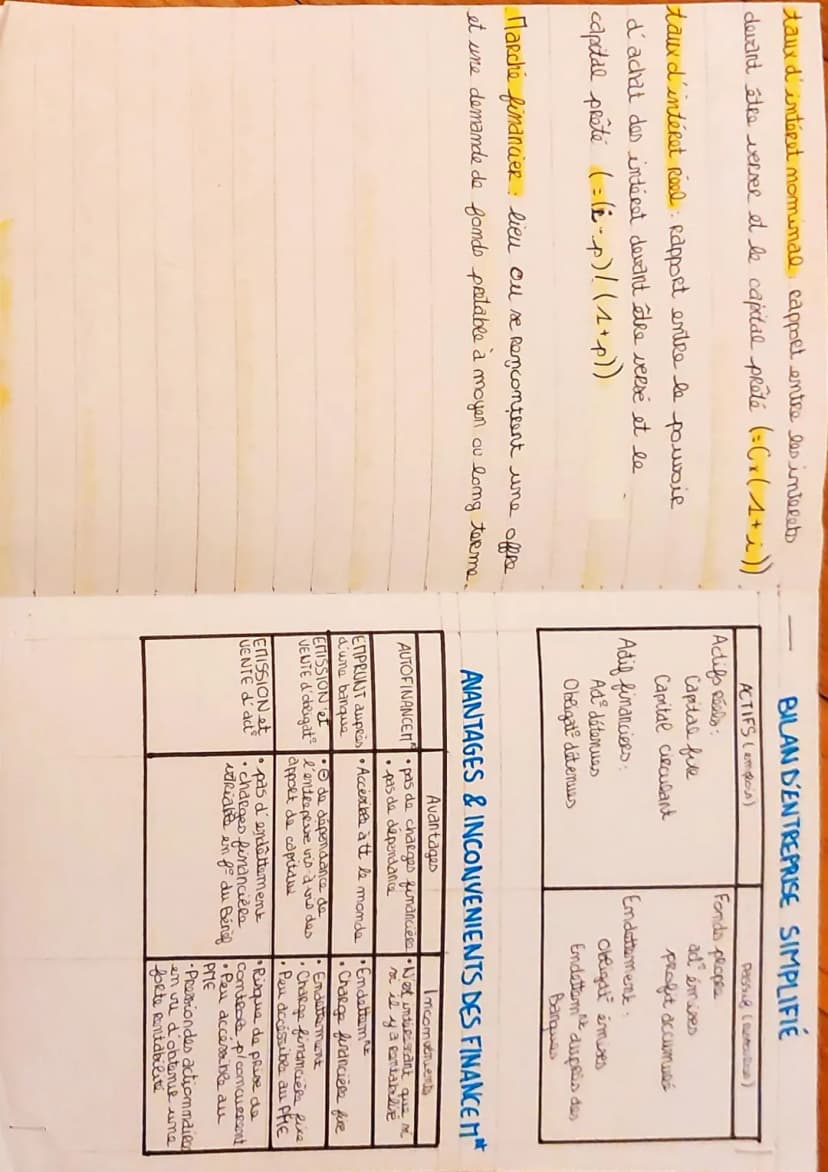 taux d'intéret nominal : rapport entre les interets
devant être verser et le capital prêté (= C x (1 + i))
taux d'intéret Réel : Rapport entre le pouvoir
d'achat des intéret devant être versé et le
capital prêté (= (i - p) / (1 + p))
Marché financier : lieu ou se rencontrent une offre
et une demande de fonds prétable à moyen ou long terme.
BILAN D'ENTREPRISE SIMPLIFIÉ
ACTIFS (emplois)
PASSIFS (ressources)
Actifs Réels :
Capital fixe
Capital circulant
Actif financiers :
Act° détenues
Obligat° détenues
Fonds propre
act° émises
profit accumulé
Endettement :
Obligat° émises
Endettemnt auprès des
Banques
AVANTAGES & INCONVENIENTS DES FINANCEMnt
Avantages
Inconvénients
AUTOFINANCEMnt
• pas de charges financière
• pas de dépendance
• N'est intéressant que si
si il y a rentabilité
EMPRUNT auprès
d'une banque
• Accessible à tt le monde
• Endettemnt
• Charge financière fixe
EMISSION et
VENTE d'obligat°
• ⊖ de dépendance de
l'entreprise vis à vis des
apport de capitaux
• Endettement
• Charge financière fixe
• Peu accéssible au PME
EMISSION et
VENTE d'act°
• pas d'endettement
• charges financière
variable en f° du Bénéf
• Risque de prise de
controle p/concurrent
• Peu accessible au
PME
• Pression des actionnaires
en vu d'obtenir une
forte rentabilité